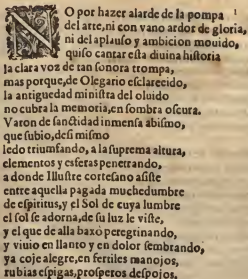 NO por hazer alarde de la pompa 1
del arte, ni con vano ardor de gloria,
ni del aplauso y ambicion mouido,
quiso cantar esta diuina historia
la clara voz de tan sonora trompa,
mas porque, de Olegario esclarecido,
la antiguedad ministra del oluido
no cubra la memoria, en sombra oscura.
Varon de sanctidad inmensa abismo,
que subio, desi mismo
ledo triumfando, a la suprema altura,
elementos y esferas penetrando,
a donde Illustre cortesano asiste
entre aquella pagada muchedumbre
de espiritus, y el Sol de cuya lumbre
el sol se adorna, de su luz le viste,
y el que alla baxò peregrinando,
y viuio en llanto y en dolor sembrando,
ya coje alegre, en fertiles manojos,
rubias espigas, prosperos despojos.